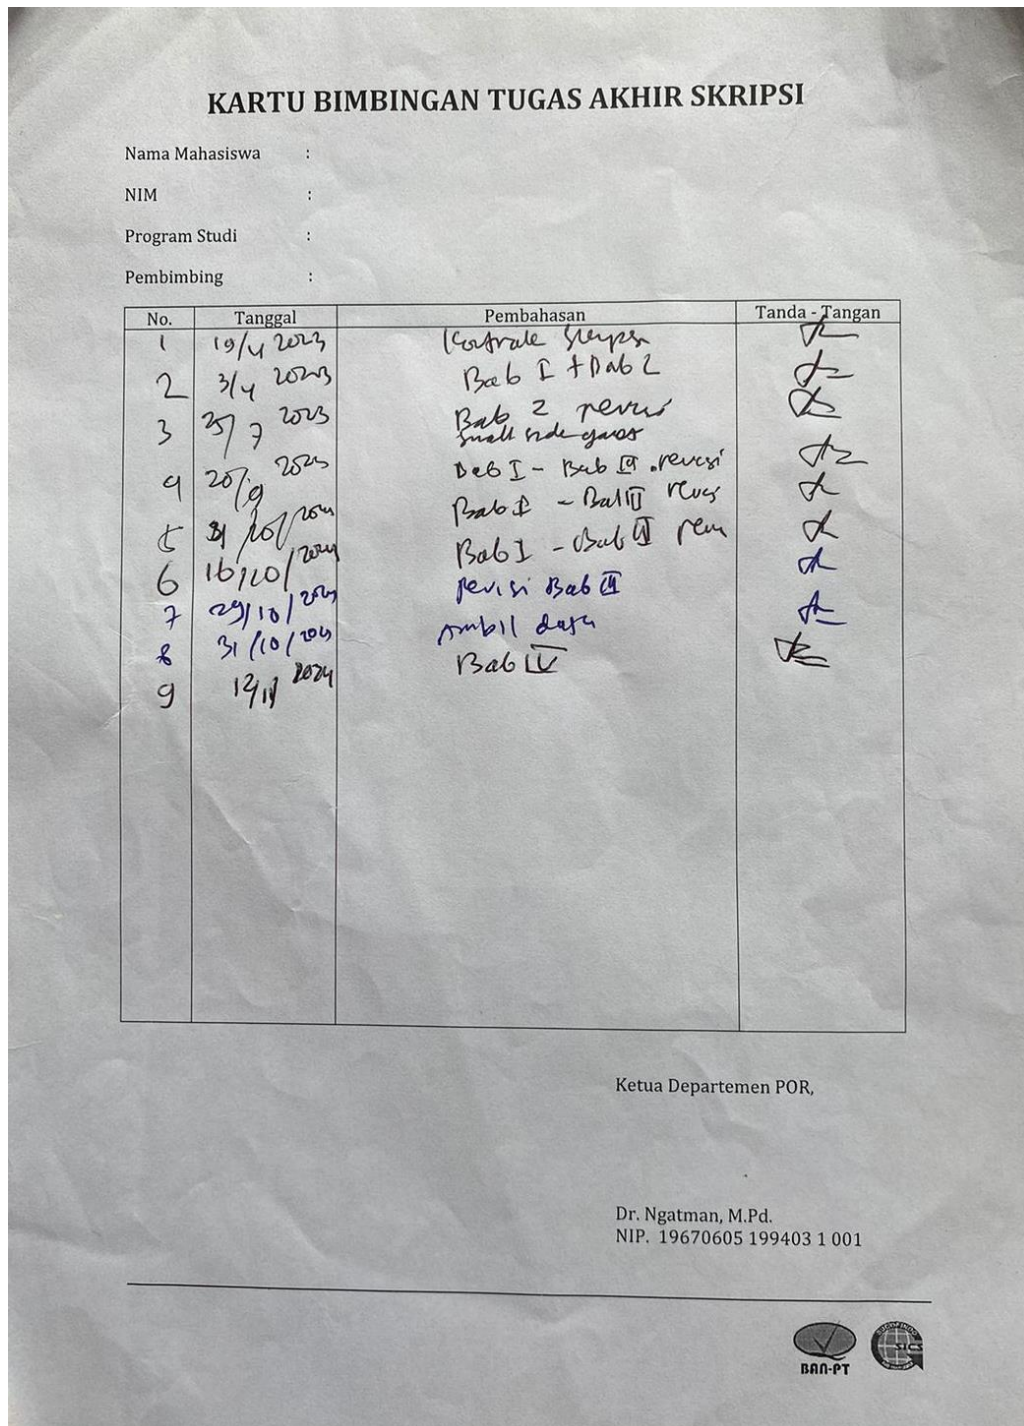 KARTU BIMBINGAN TUGAS AKHIR SKRIPSI
Nama Mahasiswa :
NIM :
Program Studi :
Pembimbing :
No. Tanggal Pembahasan Tanda - Tangan
1 19/4 2023
2 3/4 2023 Bab I + Bab 2
3 25/7 2023 Bab 2 revisi
small side games
4 20/9 2023 Bab I - Bab III revisi
5 31/10/ Bab I - Bab III
6 16/10/2024 Bab I - Bab III
7 29/10/2024 revisi Bab III
8 31/10/2024 Ambil data
9 12/11 2024 Bab IV
Ketua Departemen POR,
Dr. Ngatman, M.Pd.
NIP. 19670605 199403 1 001
BAN-PT
SICS